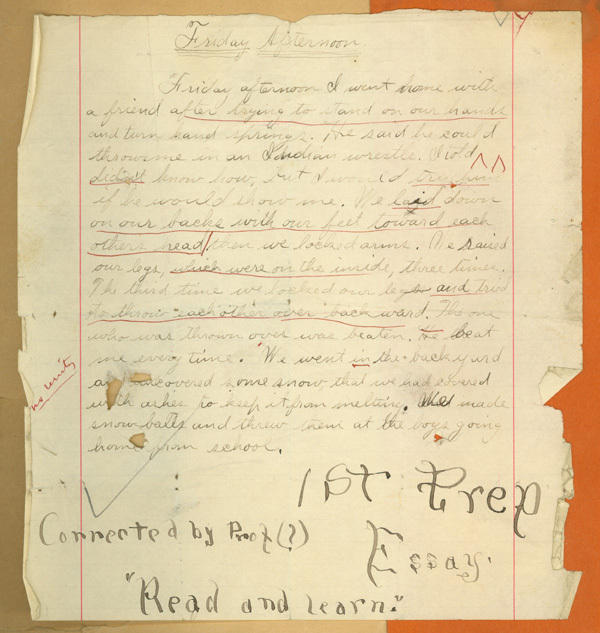 Friday Afternoon
Friday afternoon I went home with
a friend after trying to stand on our hands
and turn hand springs. He said he could
throw me in an Indian wrestle. I told
didn't know how, but I would try him
if he would show me. We laid down
on our backs with our feet toward each
others head, then we locked arms. We raised
our legs, which were on the inside, three times.
The third time we locked our legs and tried
to throw each other over back ward. The one
who was thrown over was beaten. He beat
me every time. We went in the back yard
uncovered some snow, that we had covered
with ashes to keep it from melting. We made
snow balls and threw them at the boys going
home from school.
no unity
1st Prep
Connected by Prof (?)
Essay.
"Read and learn."